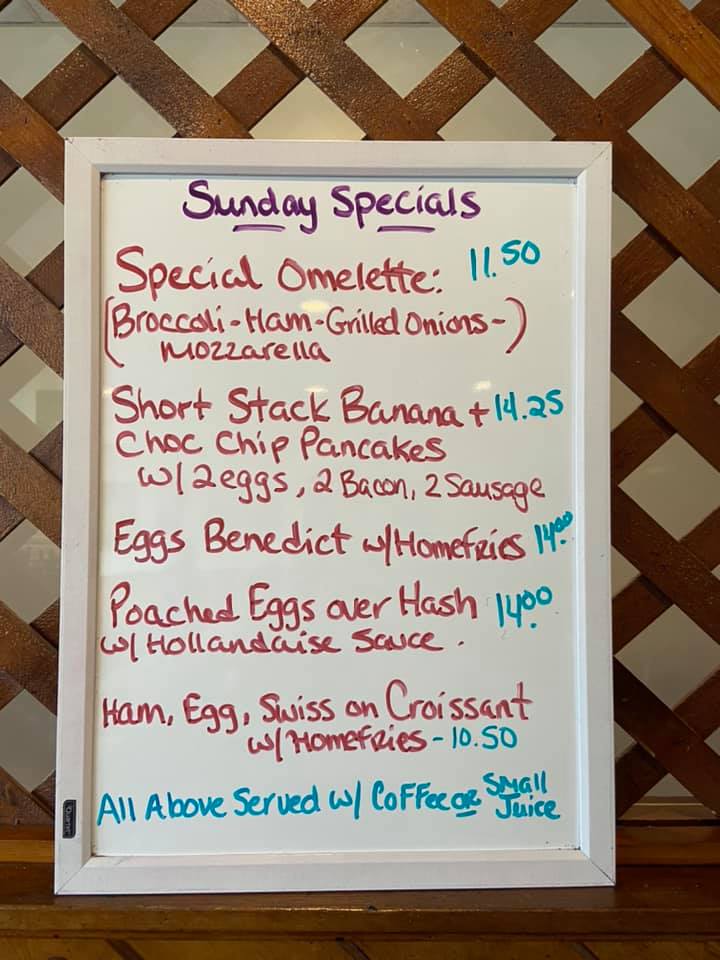 Sunday Specials
Special Omelette: 11.50
(Broccoli-Ham-Grilled Onions-)
Mozzarella
Short Stack Banana + 14.25
Choc Chip Pancakes
w/ 2 eggs, 2 Bacon, 2 Sausage
Eggs Benedict w/Homefries 14.00
Poached Eggs over Hash 14.00
w/ Hollandaise Sauce.
Ham, Egg, Swiss on Croissant
w/Homefries - 10.50
All Above Served w/ Coffee or Small Juice
Quartet